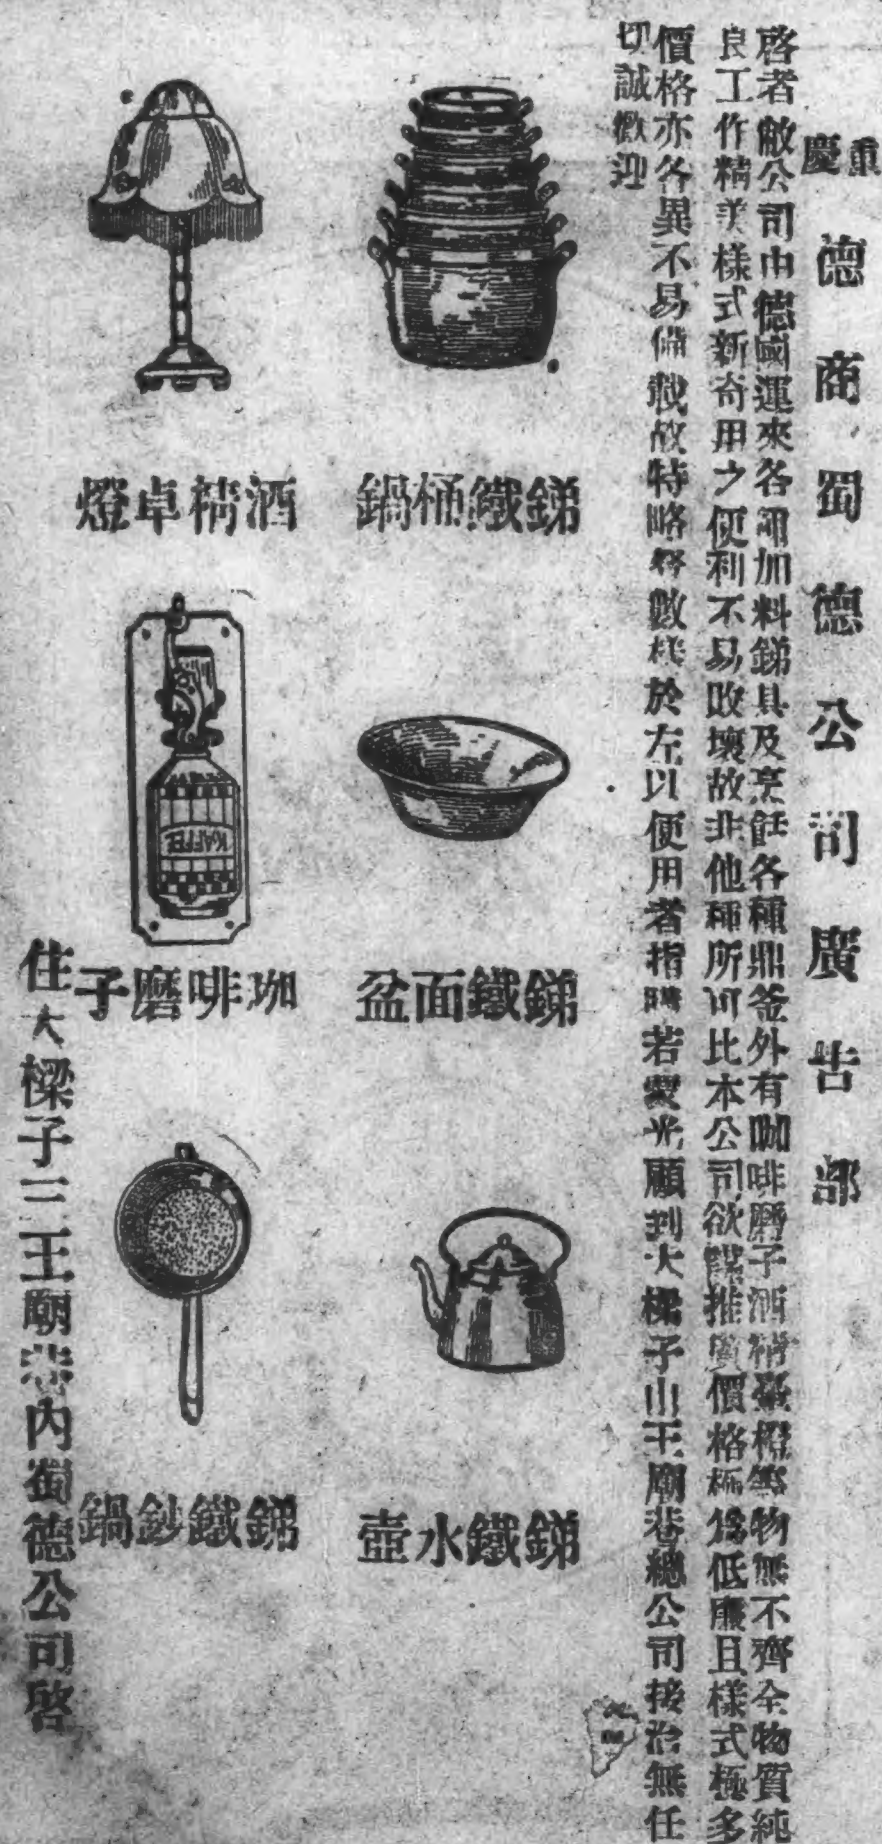 重慶
德商蜀德公司廣告部
啓者敝公司由德國運來各種加料銻具及烹飪各種鼎釜外有咖啡磨子酒精臺燈等物無不齊全物質純
良工作精美樣式新奇用之便利不易敗壞故非他種所可比本公司欲謀推廣價格極爲低廉且樣式極多
價格亦各異不易備載故特略舉數樣於左以便用者指購若蒙光顧到大樑子山王廟巷總公司接洽無任
切誠歡迎
銻鐵桶鍋
酒精卓燈
銻鐵面盆
珈啡磨子
KAFFEE
銻鐵水壺
銻鐵鈔鍋
住大樑子三王廟巷內蜀德公司啓